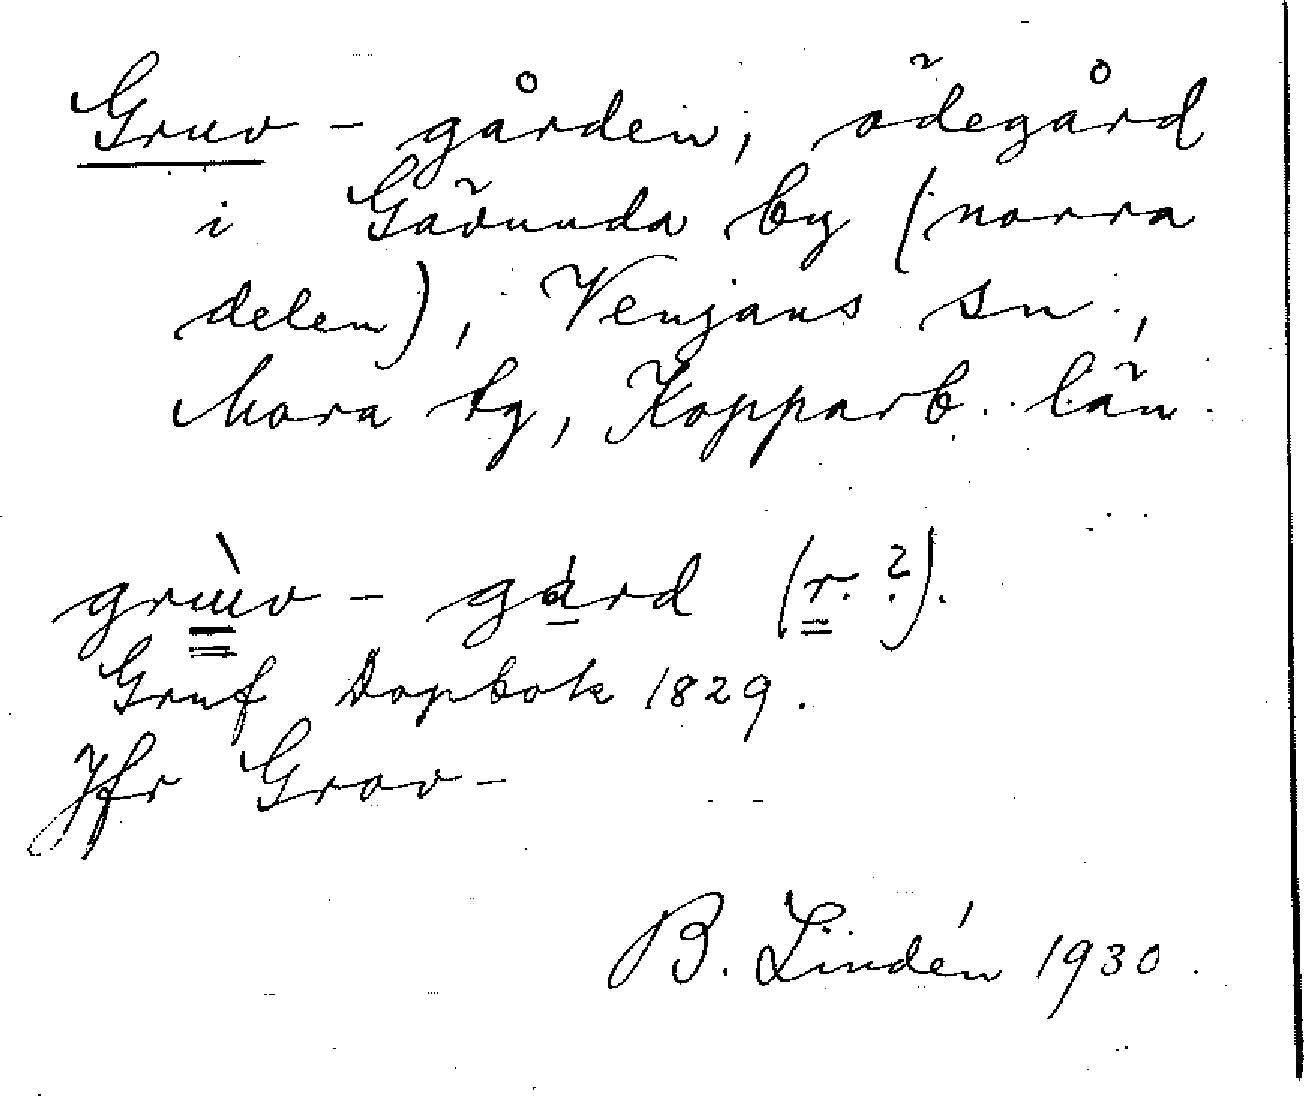 Gruv-gården, ödegård
i Gävunda by (norra
delen), Venjans sn.,
Mora tg, Kopparb. län.
grùv-gárd (r.?).
Gruf Dopbok 1829.
Jfr Grov-
B. Lindén 1930.